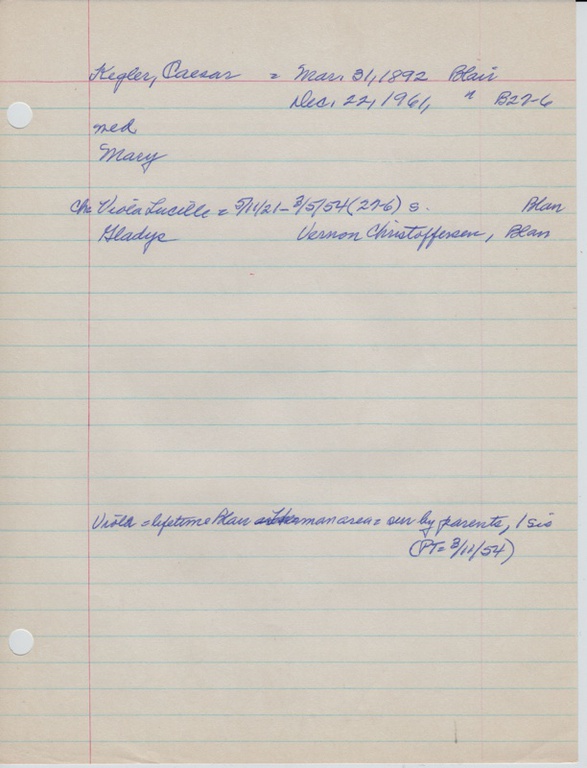 Kegler, Caesar = Mar. 31, 1892 Blair
Dec. 22, 1961, " B27-6
med
Mary
Ch: Viola Lucille = 5/11/21 - 3/5/54 (27-6) s. Blair
Gladys Vernon Christoffersen, Blair
Viola = lifetime Blair Herman area = sur by parents, 1 sis
(PT= 3/11/54)